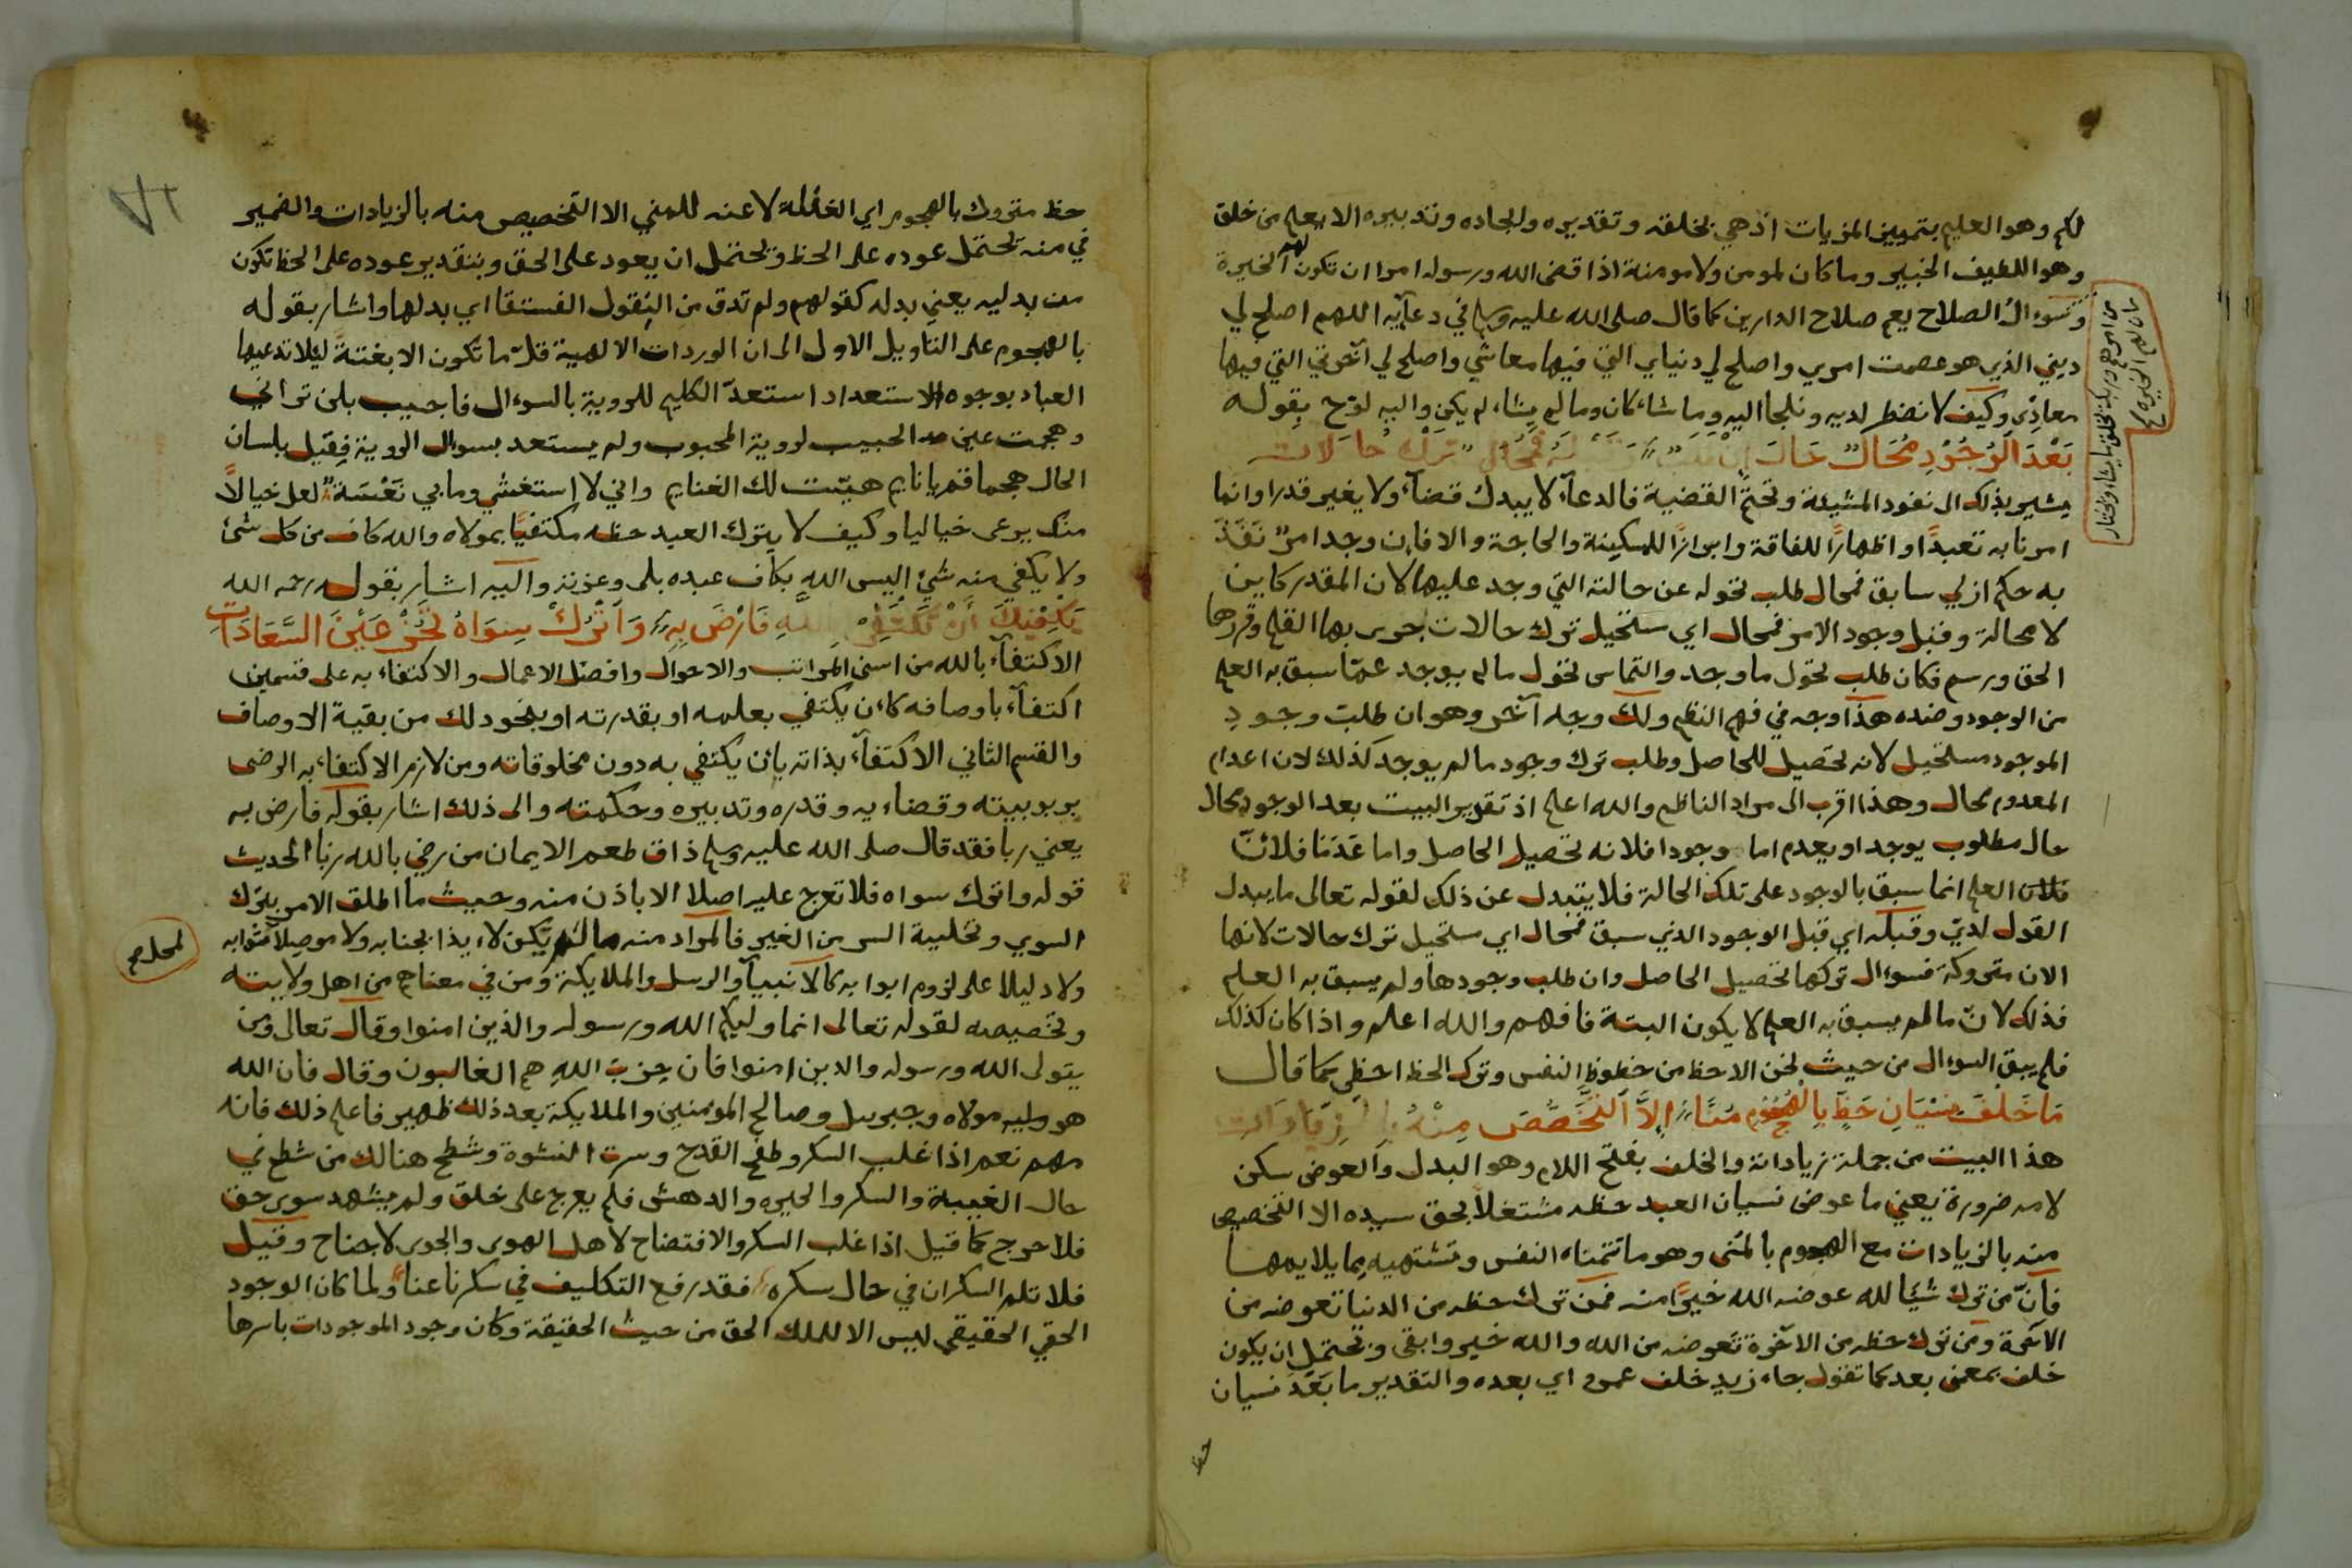 لكم وهو العليم بتمييز المزيات اذ هي بخلقه وتقديره وايجاده وتدبيره الا يعلم من خلق
وهو اللطيف الخبير وما كان لمومن ولا مومنة اذا قضى الله ورسوله امرا ان تكون لهم الخيرة
من امرهم وربك يخلق ما يشا ويختار
ما كان لهم الخيرة
وسوءال الصلاح يعم صلاح الدارين كما قال صلى الله عليه وسلم في دعآيه اللهم اصلح لي
ديني الذي هو عصمت امري واصلح لي دنياي التي فيها معاشي واصلح لي آخرتي التي فيها
معادي وكيف لا نضطر لديه ونلجا اليه وما شاء كان وما لم يشاء لم يكن واليه لوّح بقوله
بَعْدَ الوُجُوْدِ مُحَالٌ حَالَ إنْ طلبتْ وقبله فمحال تَرْكُ حالات
يشير بذلك الى نفود المشيئة وتحتّم القضية فالدعآء لا يبدل قضآء ولا يغير قدرا وانما
امرنا به تعبدًا واظهارًا للفاقة وابرازًا للمسكينة والحاجة والا فان وجد امرٌ نَفَذَ
به حكم ازلي سابق فمحال طلب تحوله عن حالته التي وجد عليها لان المقدر كاين
لا محالة وقبل وجود الامر فمحال اي ستخيل ترك حالات جرى بها القلم وقررها
الحق ورسم فكان طلب تحول ما وجد والتماس تحول ما لم يوجد عمّا سبق به العلم
من الوجود وضده هذا وجه في فهم النظم ولك وجه آخر وهو ان طلبت وجود
الموجود مستحيل لانه تحصيل للحاصل وطلب ترك وجود ما لم يوجد كذلك لان اعدام
المعدوم محال وهذا اقرب الى مراد الناظم والله اعلم اذ تقدير البيت بعد الوجود محال
حال مطلوب يوجد او يعدم اما وجودا فلانه تحصيل الحاصل واما عَدَمًا فلانّ
فلان العلم انما سبق بالوجود على تلك الحالة فلا يتبدل عن ذلك لقوله تعالى ما يبدل
القول لديّ وقبله اي قبل الوجود الذي سبق فمحال اي ستحيل ترك حالات لانها
الان متروكة فسوءال تركها تحصيل الحاصل وان طلب وجودها ولم يسبق به العلم
فذلك لانّ ما لم يسبق به العلم لا يكون البتة فافهم والله اعلم واذا كان كذلك
فلم يبق السوءال من حيث نحن الا حظ من حظوظ النفس وترك الحظ احظى كما قال
مَا خَلْفَ نِسْيَانِ حَظٍّ بِالهُجُوْمِ مُنًا إلاَّ التخَصُّصَ مِنْهُ بِالزِيَادَات
هذا البيت من جملة زياداته والخلف بفتح اللام وهو البدل والعوض سكن
لامه ضرورة يعني ما عوض نسيان العبد حظه مشتغلاً بحق سيده الا التخصيص
منه بالزيادات مع الهجوم بالمنى وهو ما تتمناه النفس وتشتهيه بما يلايمها
فانّ من ترك شيئا لله عوضه الله خيرًا منه فمن ترك حظه من الدنيا تعوضه من
الاخرة ومن ترك حظه من الاخرة تعوضه من الله والله خير وابقى وتحتمل ان يكون
خلف بمعنى بعد كما تقول جاء زيد خلف عمرو اي بعده والتقدير ما بَعْدَ نسيان
حظ
حظ متروك بالهجوم اي الغافلة لا عنه للمني الا التخصيص منه بالزيادات والضمير
في منه يحتمل عوده على الحظ ويحتمل ان يعود على الحق وبتقدير عوده على الحظ تكون
من بدليه يعني بدله كقولهم ولم تذق من البقول الفستقا اي بدلها واشار بقوله
بالهجوم على التاويل الاول الى ان الوردات الالهية قلّ ما تكون الا بغتةً ليئلا تدعيها
العباد بوجوه الاستعداد استعدّ الكليم للروية بالسوءال فاجيب بلن تراني
وهجمت عين الحبيب لروية المحبوب ولم يستعد بسوال الروية فقيل بلسان
الحال هجما قم يا نايم هبّت لك الغنايم واني لا استغشي وما بي نَعْسَةٌ لعل خيالاً
منك يرعى خياليا وكيف لا يترك العبد حظه مكتفيًا بمولاه والله كاف من كل شئ
ولا يكفي منه شئ اليس الله بكاف عبده بلى وعزته واليه اشار بقوله رحمه الله
يَكفِيْكَ أَنْ تَكْتَفِيْ بِاللَّهِ فَارْضَ بِهِ وَاتْرُكْ سِوَاهُ تَحُزْ عَيْنَ السَّعَادَاتِ
الاكتفآء بالله من اسنى المراتب والاحوال وافضل الاعمال والاكتفاء به على قسمين
اكتفآء باوصافه كاءن يكتفي بعلمه او بقدرته او بنحو ذلك من بقية الاوصاف
والقسم الثاني الاكتفآء بذاته بان يكتفي به دون مخلوقاته ومن لازم الاكتفاء به الرضى
بربوبيته وقضاءيه وقدره وتدبيره وحكمته والى ذلك اشار بقوله فارض به
يعني ربا فقد قال صلى الله عليه وسلم ذاق طعم الايمان من رضي بالله ربا الحديث
قوله واترك سواه فلا تعرج عليه اصلا الا باذن منه وحيث ما اطلق الامر بترك
السوي وتخلية السر من الغير فالمراد منه ما لم يكن لاءيذا بجنابه ولا موصلا لثوابه
لمحله صح
ولا دليلا على لزوم ابوابه كالانبيآء والرسل والملايكة ومن في معناهم من اهل ولايته
وتخصيصه لقوله تعالى انما وليكم الله ورسوله والذين امنوا وقال تعالى ومن
يتولى الله ورسوله والدين امنوا فان حِزْبَ اللهِ هم الغالبون وقال فان الله
هو وليه مولاه وجبريل وصالح المومنين والملايكة بعد ذلك ظهير فاعلم ذلك فانه
مهم نعم اذا غلب السكر وطفح القدح وسرت النشوة وشطح هنالك من شطح في
حال الغيبة والسكر والحيره والدهش فلم يعرج على خلق ولم يشهد سوى حق
فلا حرج كما قيل اذا غلب السكر والافتضاح لاهل الهوى والجوى لا جناح وقيل
فلا تلم السكران في حال سكره فقد رفع التكليف في سكرنا عنا ولما كان الوجود
الحقي الحقيقي ليس الا للملك الحق من حيث الحقيقة وكان وجود الموجودات باسرها